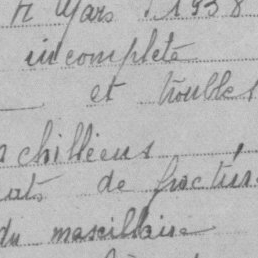 Mars 1938
incomplète
et troubles
achilléens
de fractu
du maxillaire